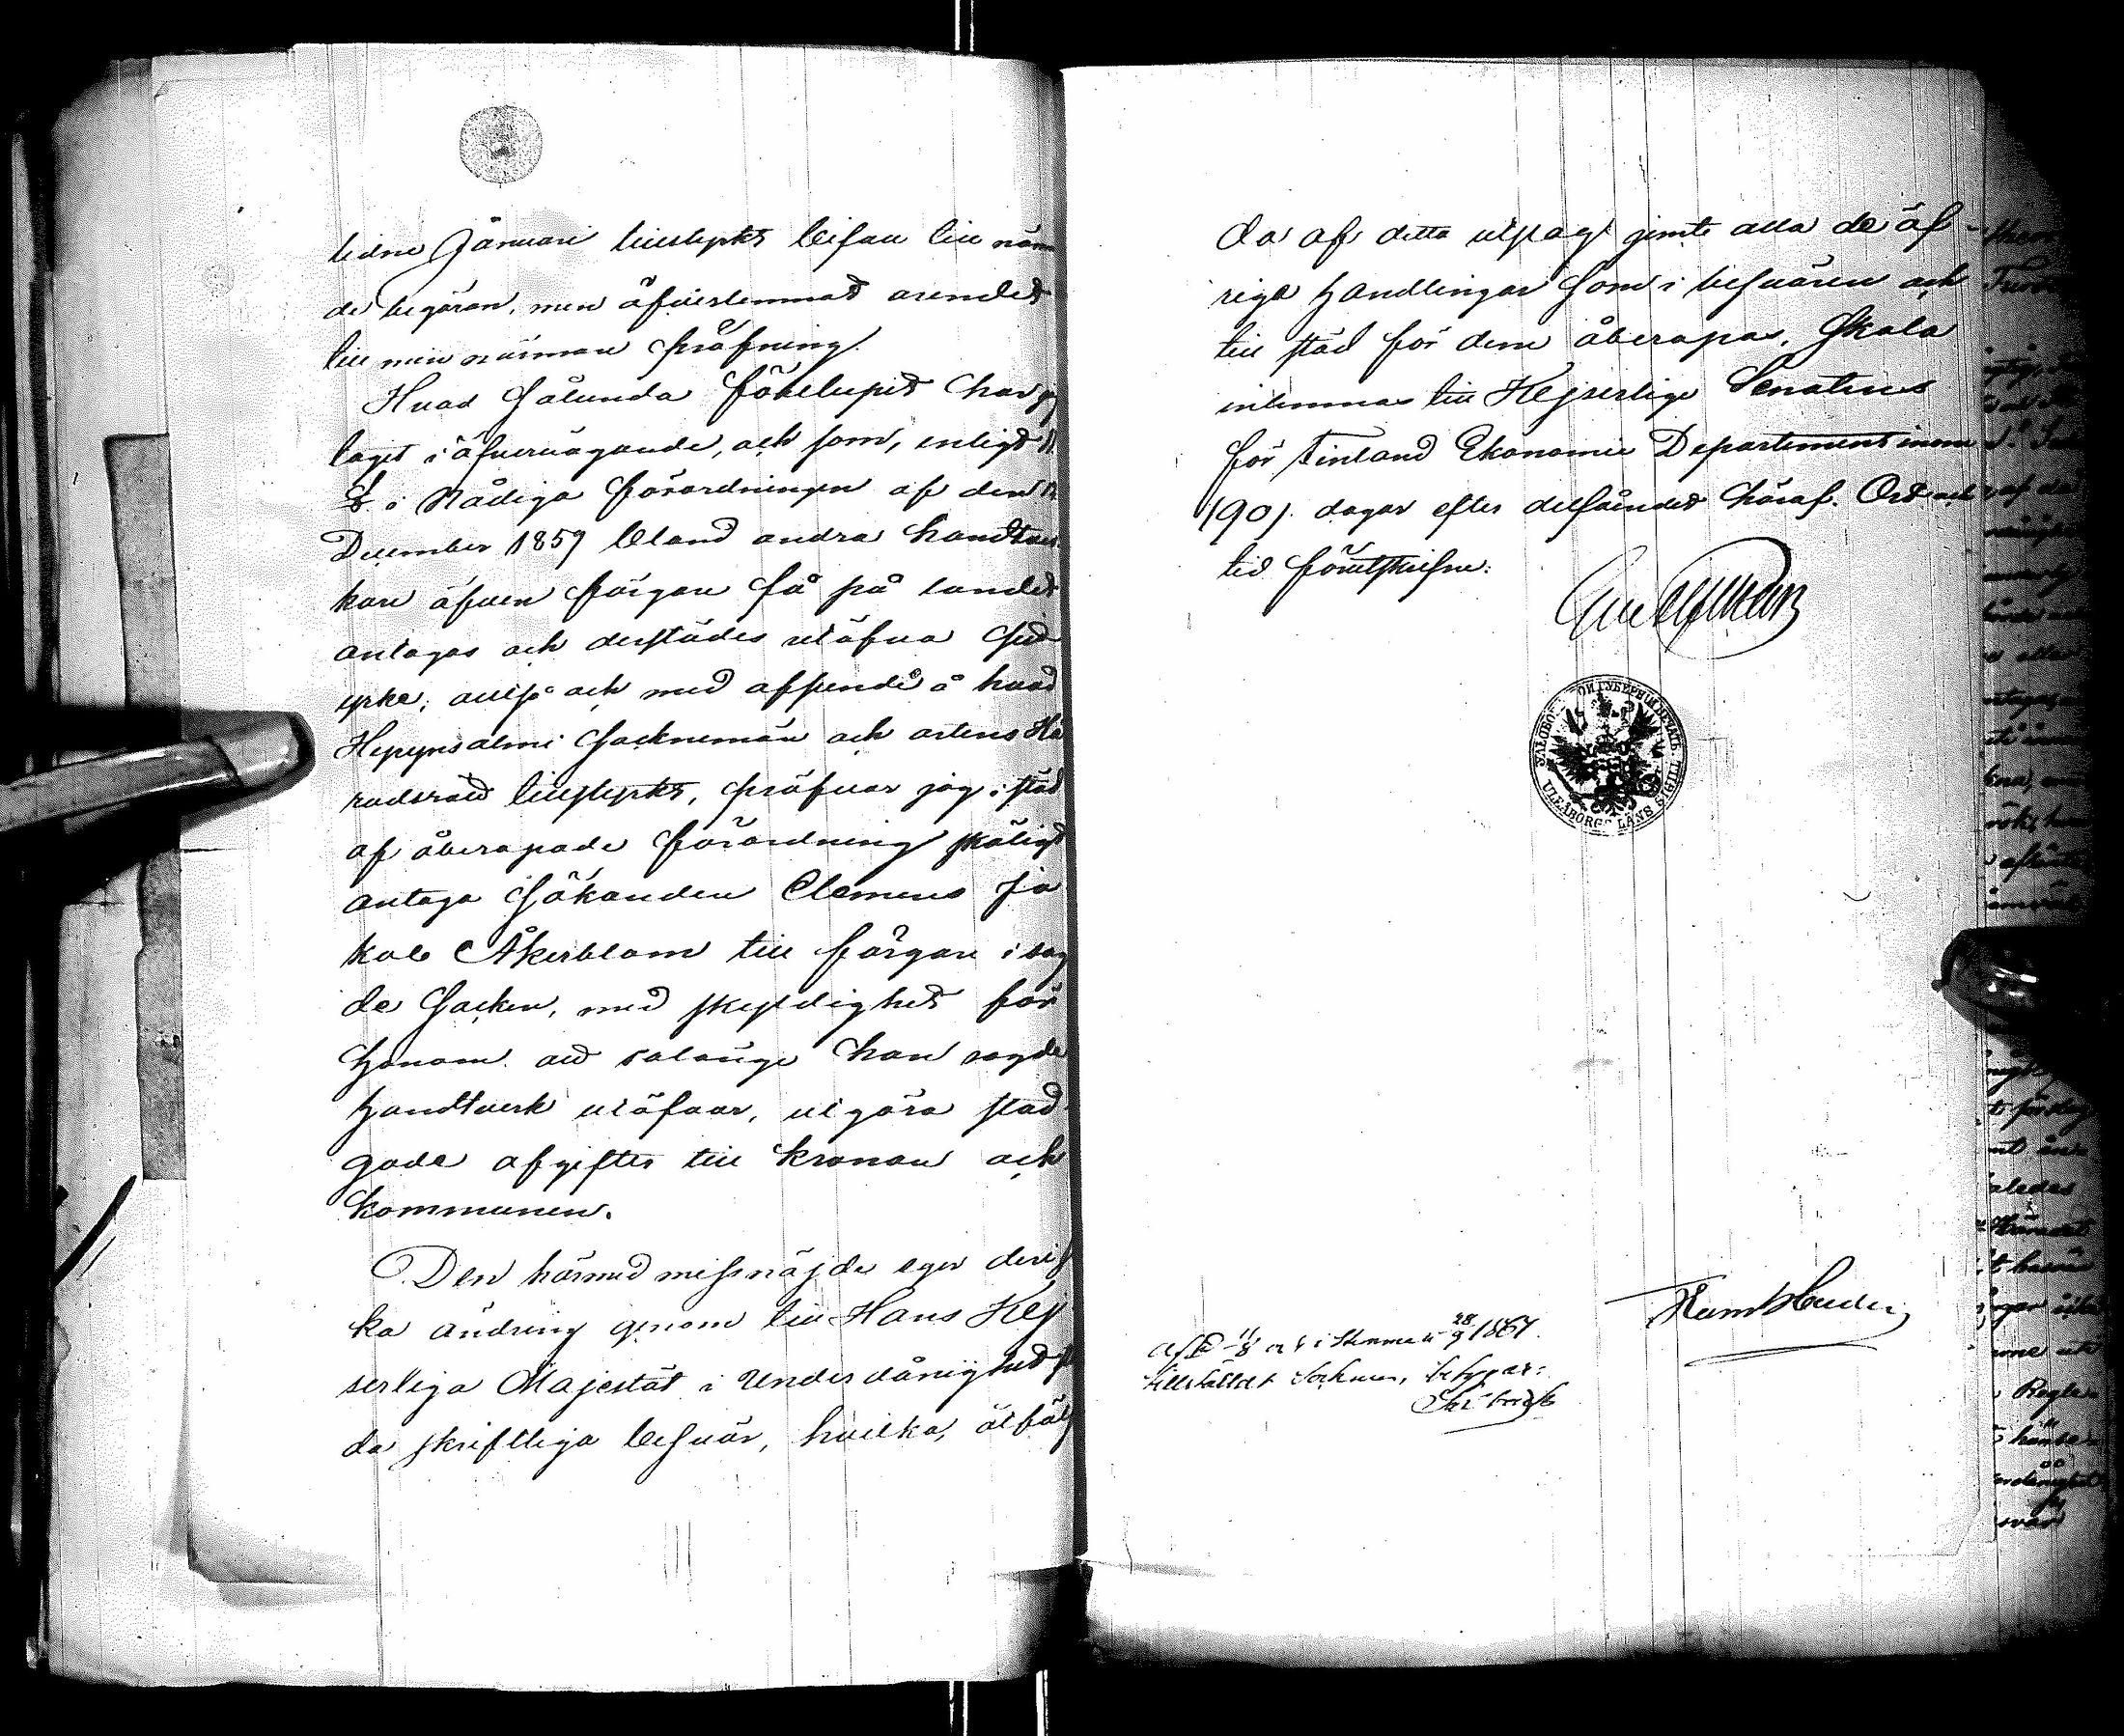 lidne Januari tillstyrkt bifall till näm
de begäran, men öfverlemnat ärendet
till min närmare pröfning.
Hvad sålunda förelupit har jag
tagit i öfvervägande, och som, enligt
§. i Nådiga förordningen af den 12
December 1859 bland andra handtver
kare äfven färgare få på landet
antagas och derstädes utöfva sitt
yrke; alltså och med afseende å hvad
Hyrynsalmi Socknemän och ortens Hä
radsrätt tillstyrkt, pröfvar jag i stöd
af åberopade förordning skäligt
antaga Sökanden Clemens Ja
kob Åkerblom till färgare i sag
de Socken, med skyldighet för
honom att så länge han sagde
handtverk utöfvar, utgöra stad
gade afgifter till kronan och
kommunen.
Den härmed missnöjde eger deri sö
ka ändring genom till Hans Kej
serliga Majestät i Underdånighet st
da skriftliga besvär, hvilka, åtföl
da af detta utslag jemte alla de öf-
riga handlingar som i besvären och
till stöd för dem åberopas, skola
inlemnas till Kejserliga Senatens
för Finland Ekonomie Departement inom
/90/. dagar efter delfåendet häraf. Ort och
tid förutskrifne:
ULEÅBORGS LÄNS SIGILL
ГУБЕРНИИ ПЕЧАТЬ
28/9 1867.
tillstäldt Socknen, betygar: